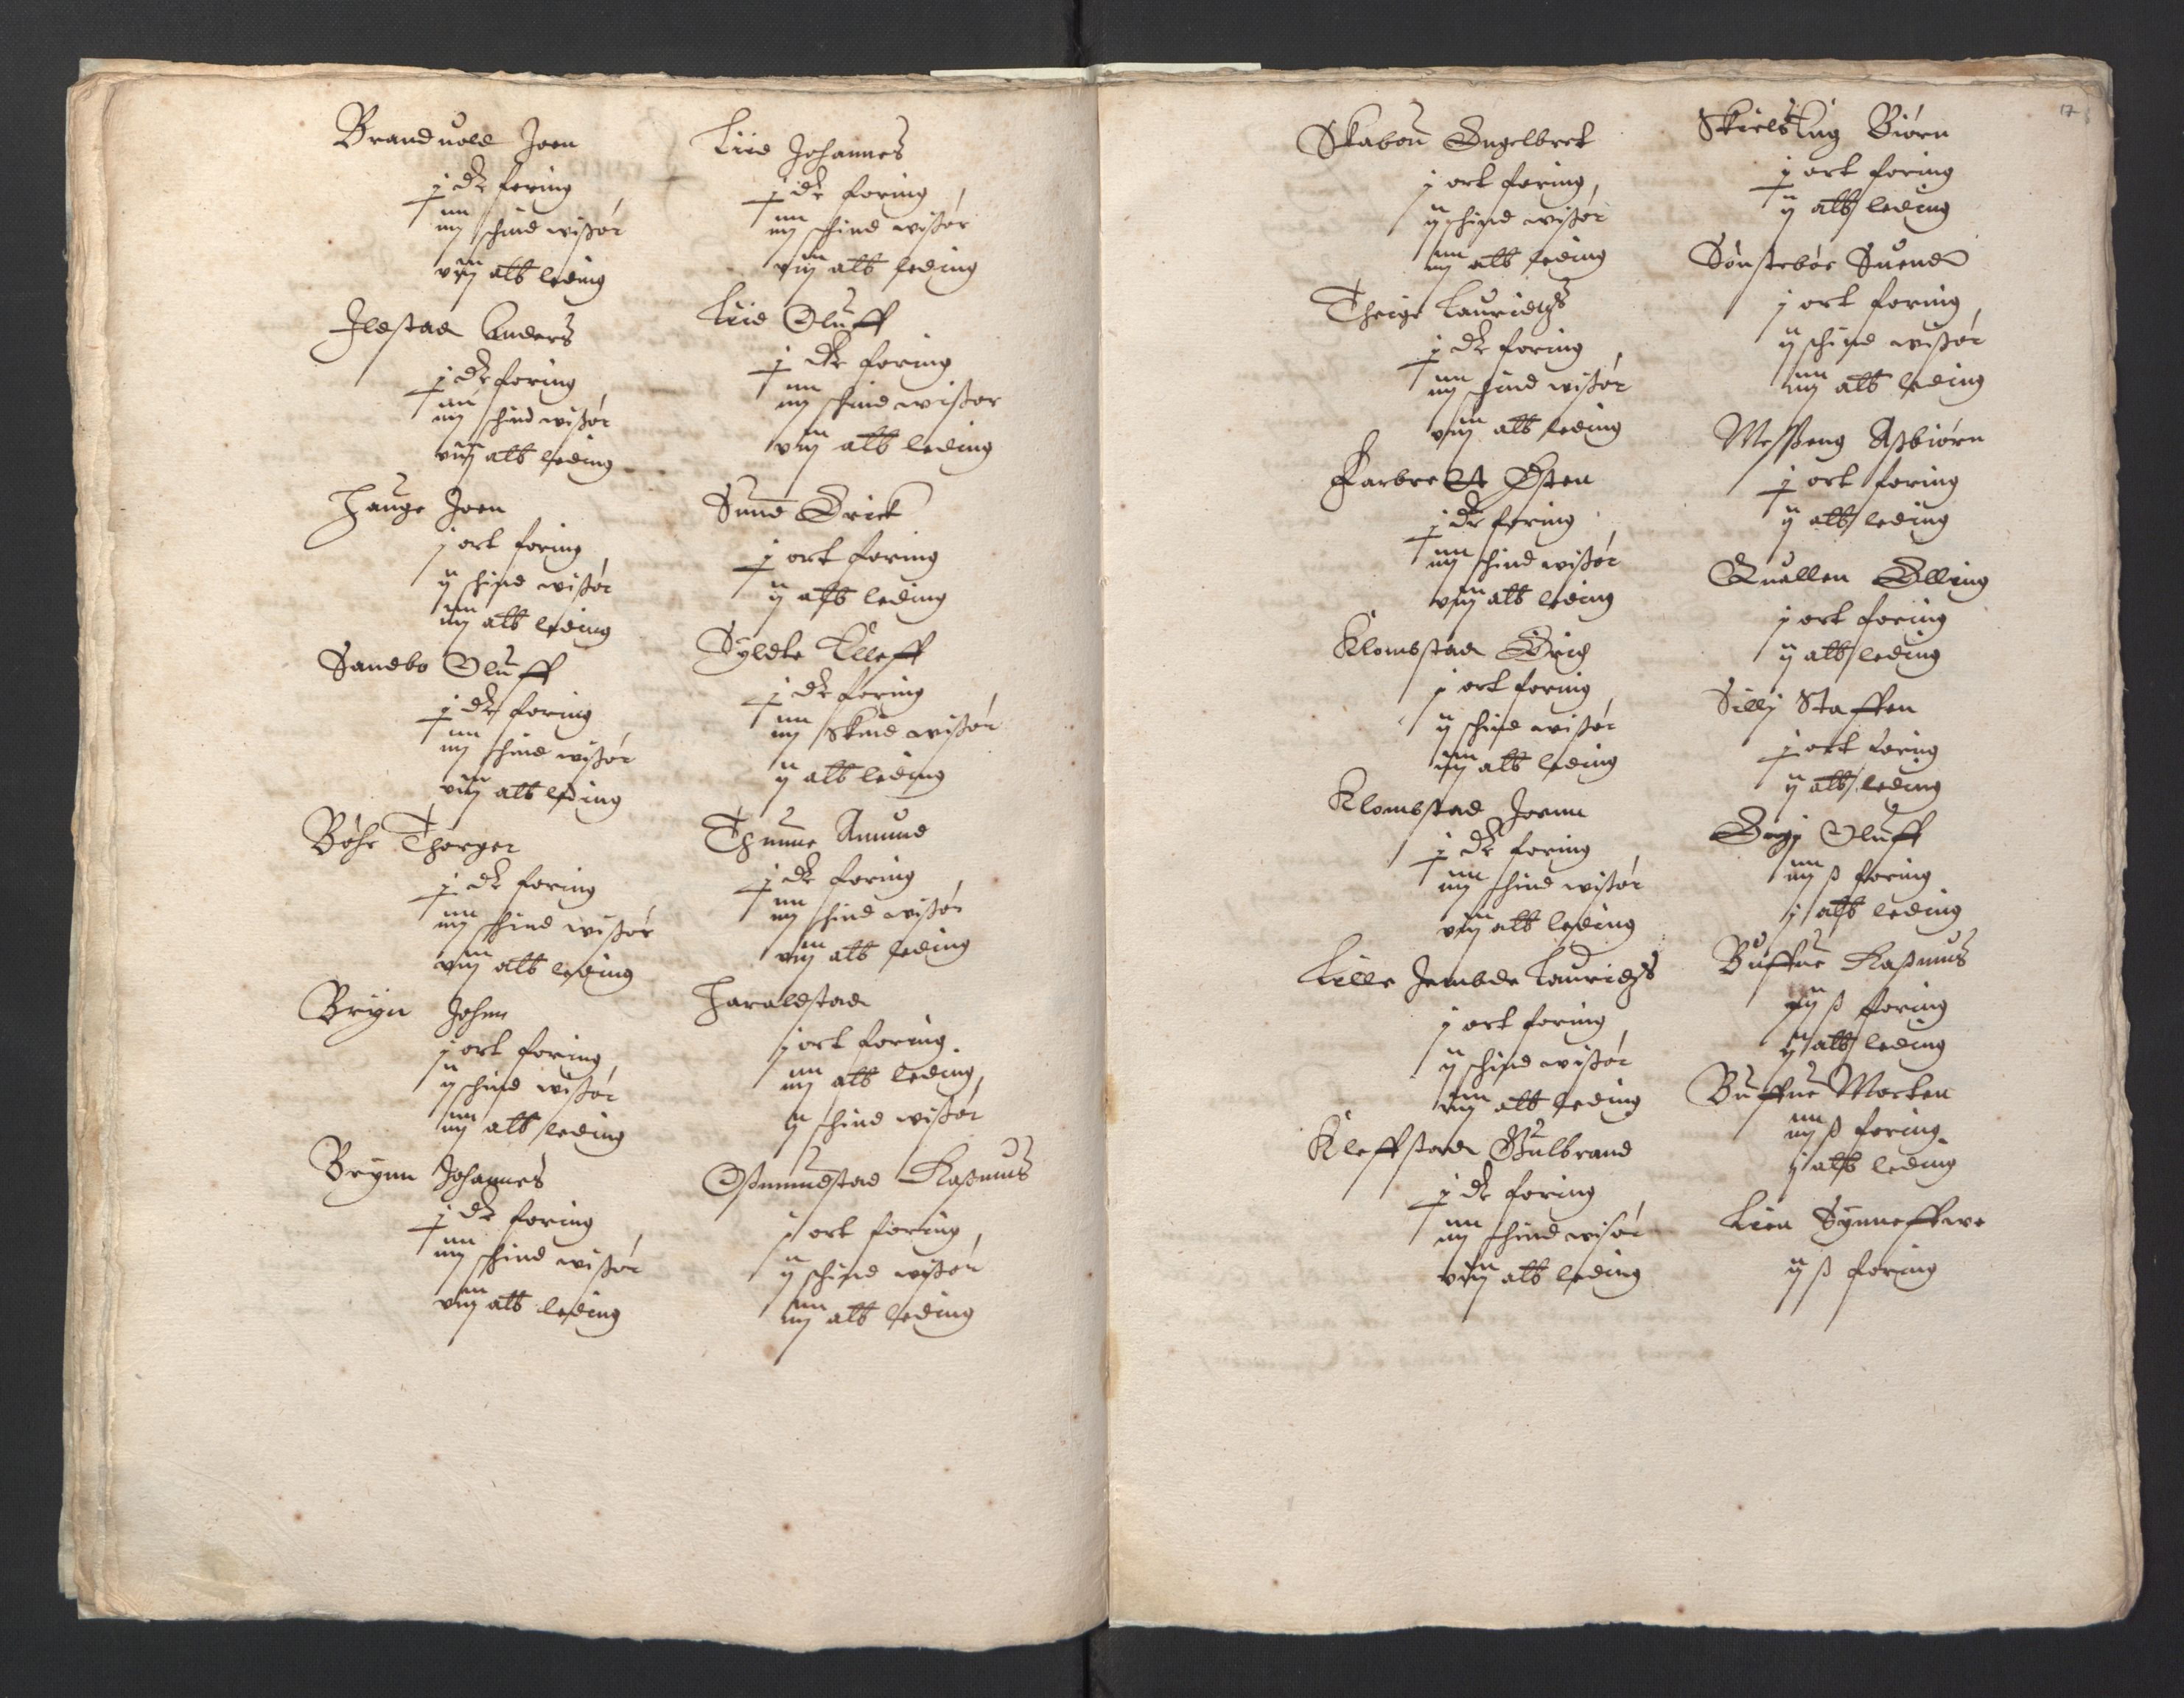 Branduold Joen
j dr foring
iiij schind wisør
viij alb leding
Jldstad Anders
j dr foring
iiij schind wisør
viij alb leding
Hauge Joen
j ort foring
ij schind wisør
iiij alb leding
Sandbo Oluff
j dr foring
iiij schind wisør
viij alb leding
Böhe Thorger
j dr foring
iiij schind wisør
viij alb leding
Bryn Johen
j ort foring
ij schind wisør
iiij alb leding
Brynn Johannes
j dr foring
iiij schind wisør
viij alb leding
Liid Johannes
j dr foring
iiij schind wisør
viij alb leding
Liid Oluff
j dr foring
iiij schind wisør
viij alb leding
Sund Erick
j ort foring
ij alb leding
Syldte Elleff
j dr foring
iiij Skind wisør
ij alb leding
Thumme Amund
j dr foring
iiij schind wisør
viij alb leding
Haraldstad
j ort foring
iiij alb leding
ij schind wisør
Oßmundstad Raßmus
j ort foring
ij schind wisør
iiij alb leding
17
Skabou Engelbret
j ort foring
ij schind wisør
iiij alb leding
Theige Lauridtz
j dr foring
iiij schind wisør
viij alb leding
Farbrot Østen
j dr foring
iiij schind wisør
viij alb leding
Klombstad Erich
j ort foring
ij schind wisør
iiij alb leding
Klombstad Joenn
j dr foring
iiij schind wisør
viij alb leding
Lille Jembde Lauridtz
j ort foring
ij schind wisør
iiij alb leding
Kleffstad Gulbrand
j dr foring
iiij schind wisør
viij alb leding
Skielstug Biørn
j ort foring
ij alb leding
Sønstebøe Suend
j ort foring
ij schind wisør
iiij alb leding
Messeng Aßbiørn
j ort foring
ij alb leding
Quallen Elling
j ort foring
ij alb leding
Sillj Staffen
j ort foring
ij alb leding
Oluff
iiij ß foring
j alb leding
Buffue Raßmus
ß foring
ij alb leding
Buffue Morten
iiij ß foring
j alb leding
Lien Synneffwe
ij ß foring